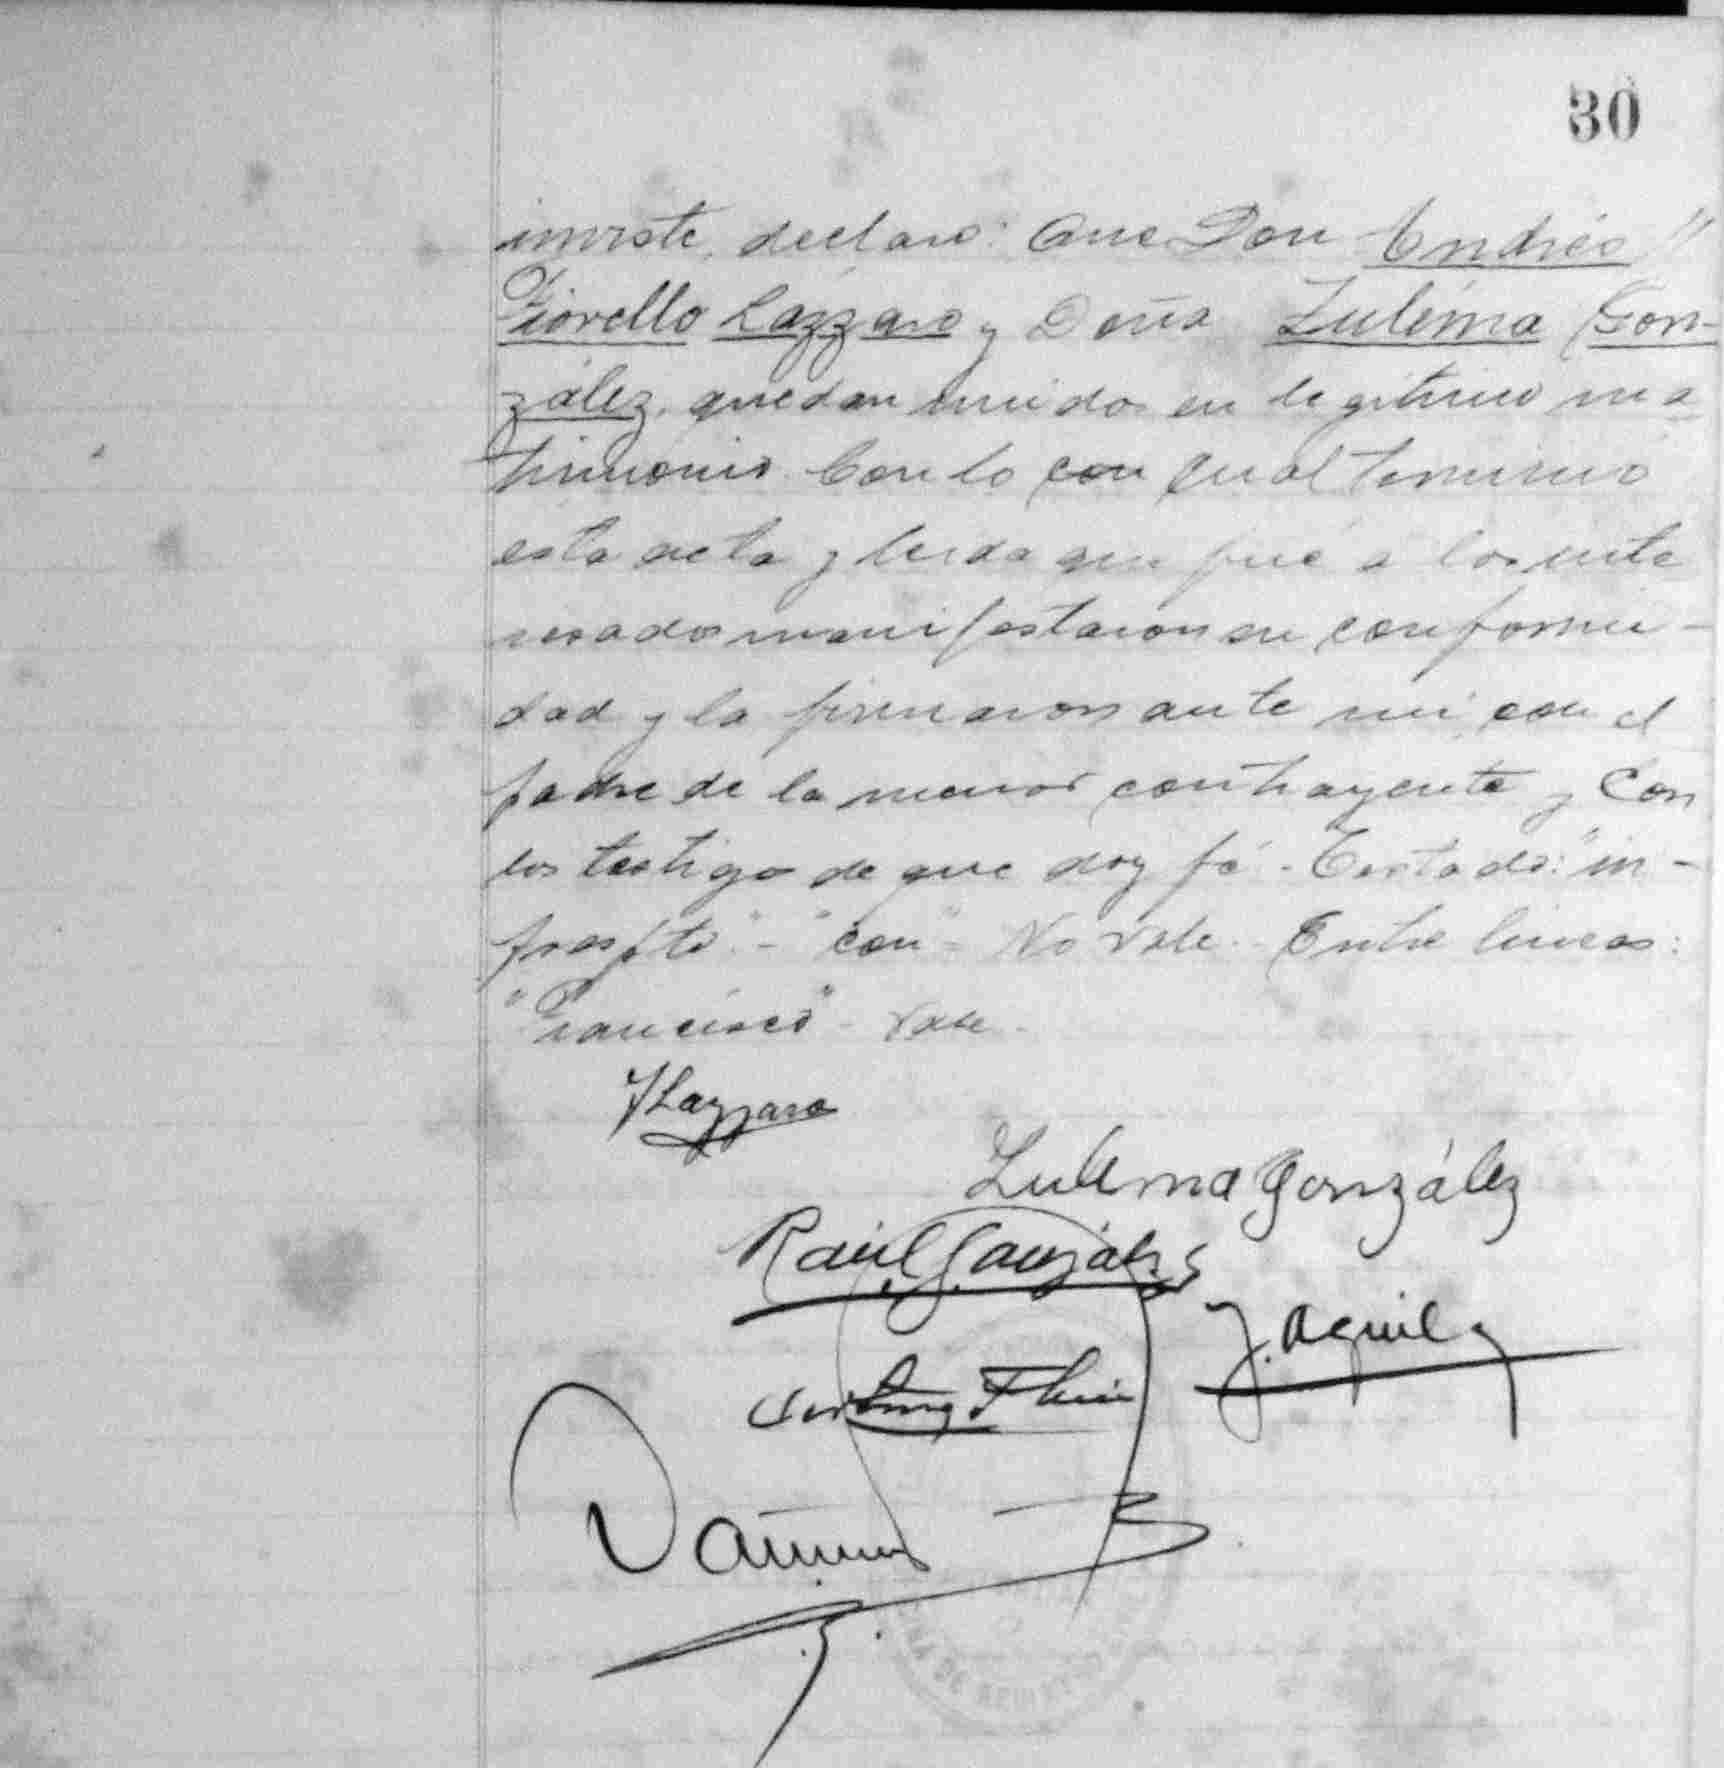 30
inviste, declaro: Que Don Andrés
Fiorello Lazzaro y Doña Zulema Gon-
zález, quedan unidos en legitimo ma
trimonio. Con lo con cual terminó
esta acta y leida que fué a los inte
resados manifestaron su conformi-
dad y la firmaron ante mi, con el
padre de la menor contrayente y con
los testigo de que doy fé.- Testado: "in-
"con" - No vale. Entre lineas:
"Francisco" - Vale.
Lazzaro
Zulema González
Raúl González
J. Aguila